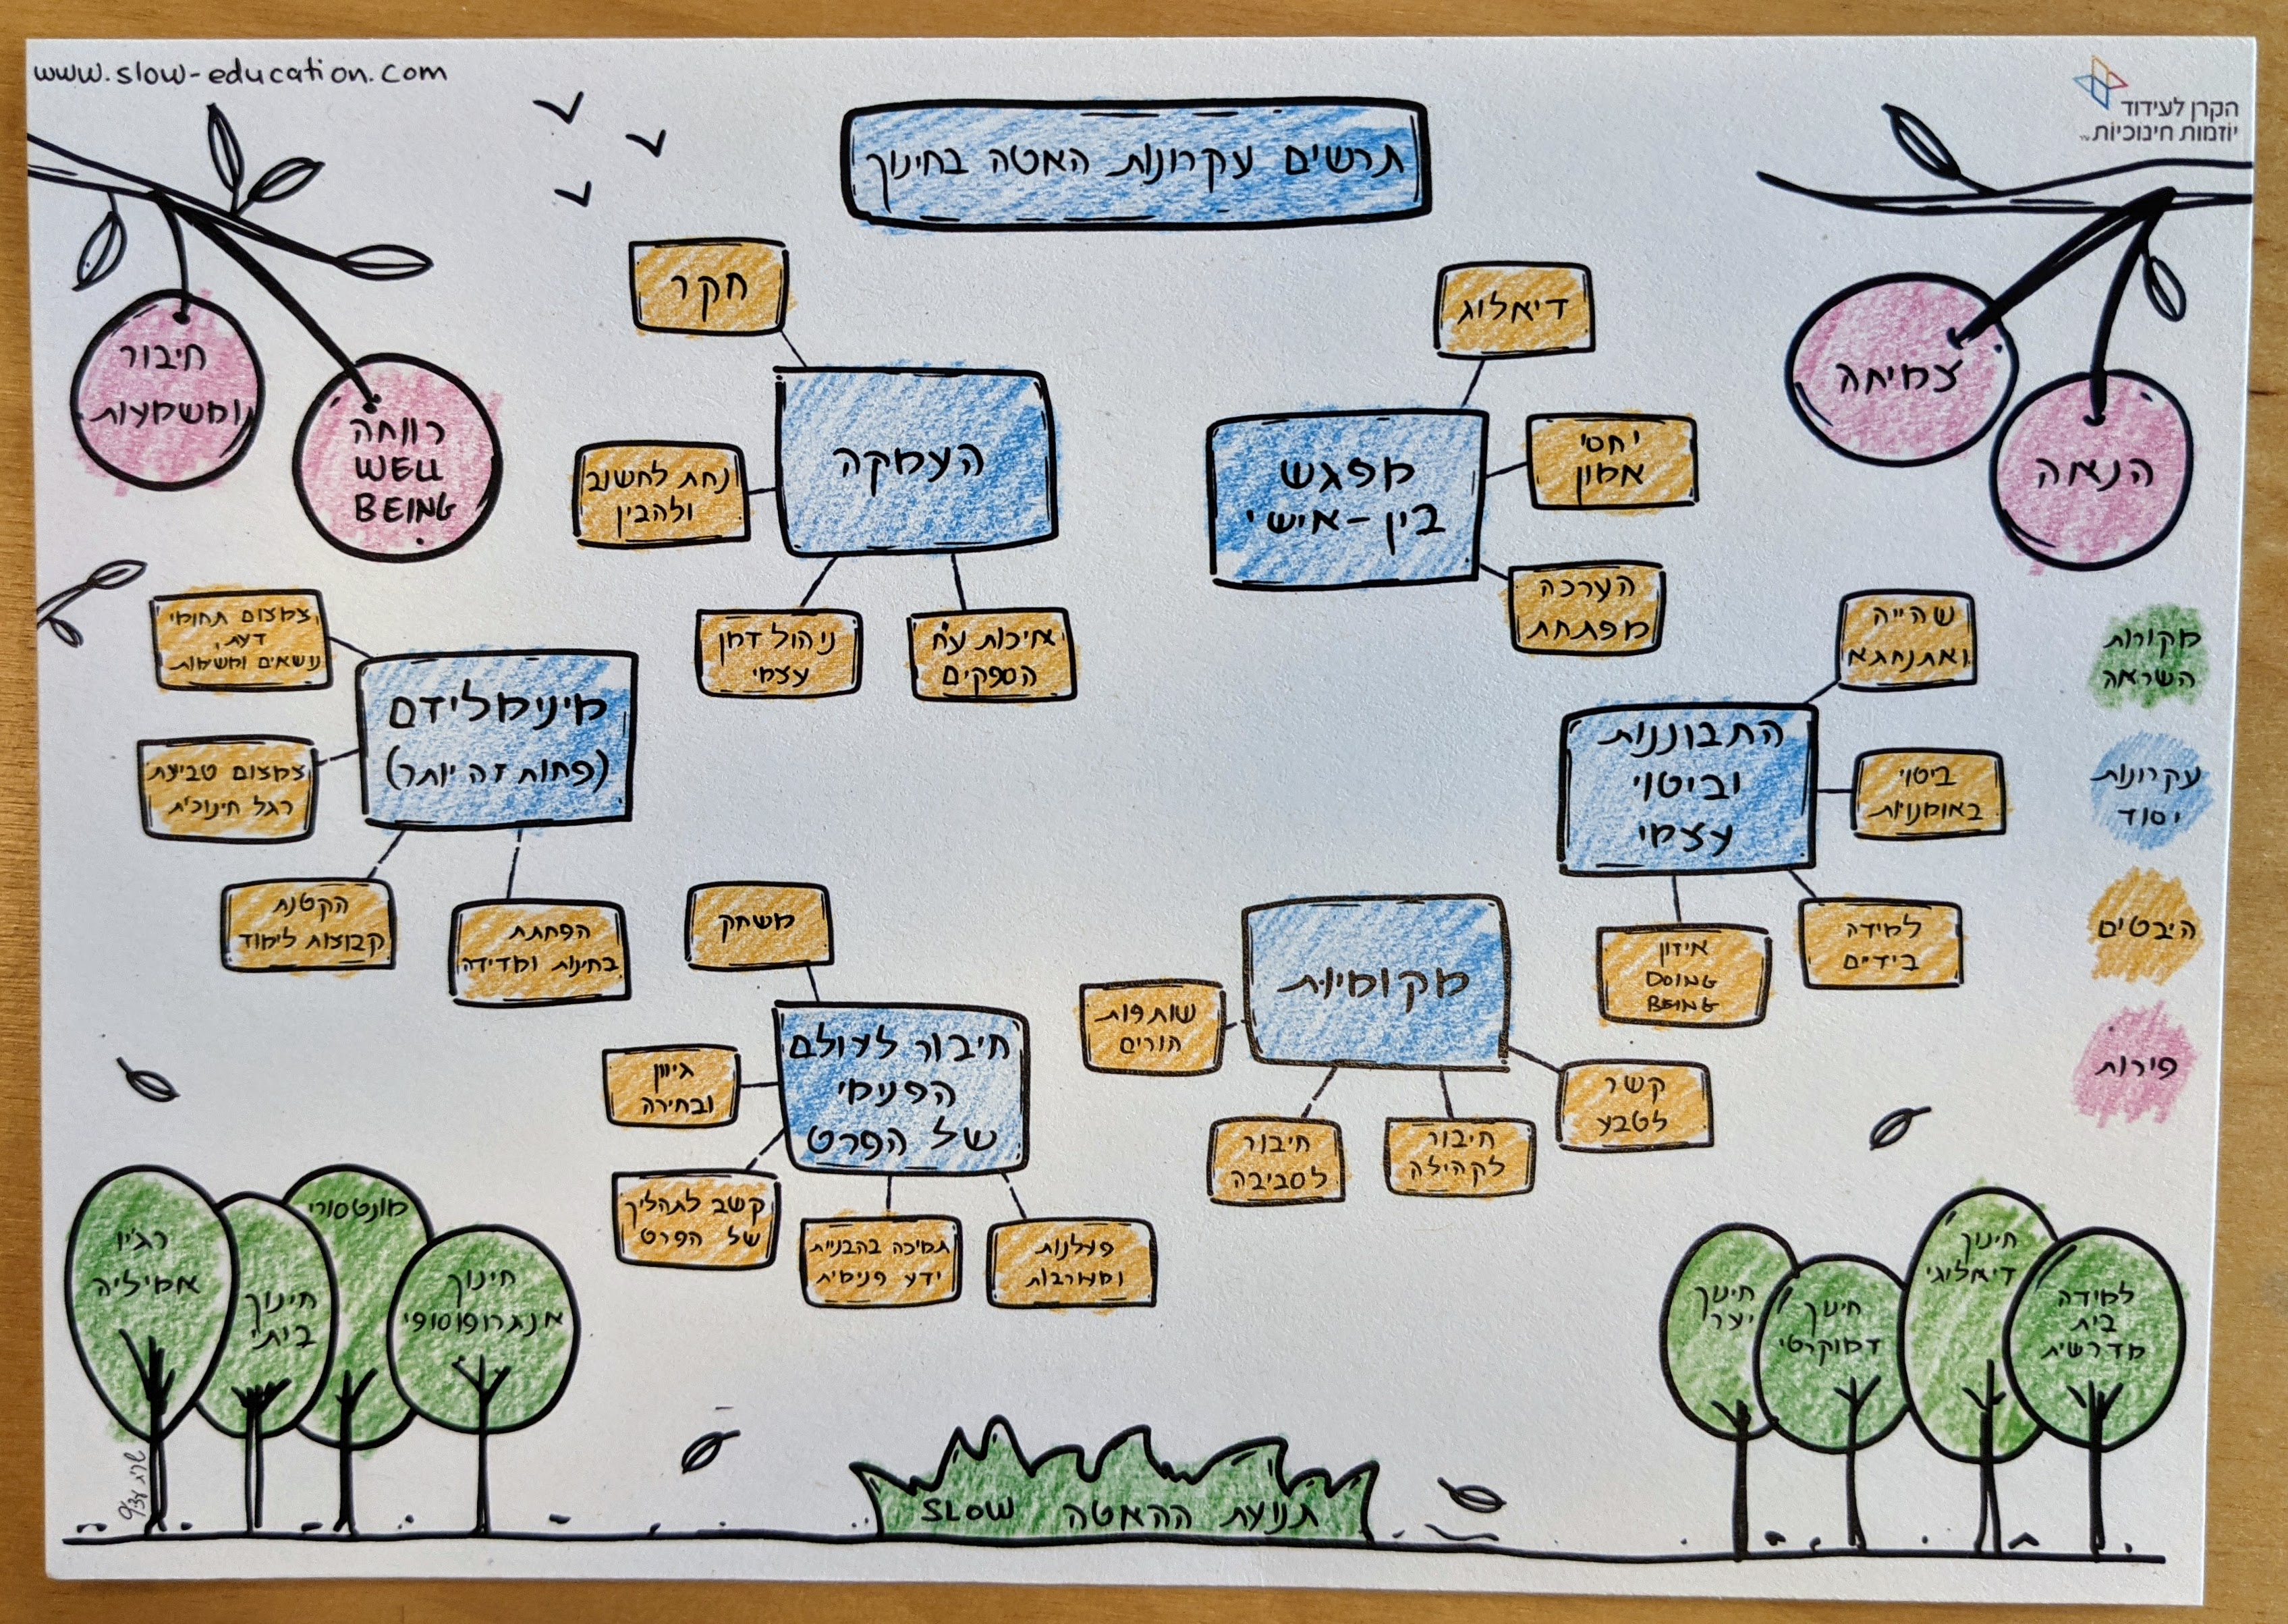 www.slow-education.com
הקרן לעידוד
יוזמות חינוכיות
תרשים עקרונות האטה בחינוך
צמיחה
הנאה
חיבור
ומשמעות
רווחה
WELL
BEING
העמקה
חקר
נחת לחשוב
ולהבין
ניהול זמן
עצמי
איכות ע״ח
הספקים
מפגש
בין-אישי
דיאלוג
יחסי
אמון
הערכה
מפתחת
התבוננות
וביטוי
עצמי
שהייה
ואתנחתא
ביטוי
באומנויות
למידה
בידיים
איזון
DOING
BEING
מקומיות
קשר
לטבע
חיבור
לקהילה
חיבור
לסביבה
שותפות
הורים
חיבור לעולם
הפנימי
של הפרט
משחק
גיוון
ובחירה
קשב לתהליך
של הפרט
תמיכה בהבניית
ידע פנימית
פעלנות
ומעורבות
מינימליזם
(פחות זה יותר)
צמצום תחומי
דעת,
נושאים ומשימות
צמצום טביעת
רגל חינוכית
הקטנת
קבוצות לימוד
הפחתת
בחינות ומדידה
מקורות
השראה
עקרונות
יסוד
היבטים
פירות
רג'יו
אמיליה
חינוך
ביתי
מונטסורי
חינוך
אנתרופוסופי
חינוך
יער
חינוך
דמוקרטי
חינוך
דיאלוגי
למידה
בית
מדרשית
תנועת ההאטה SLOW